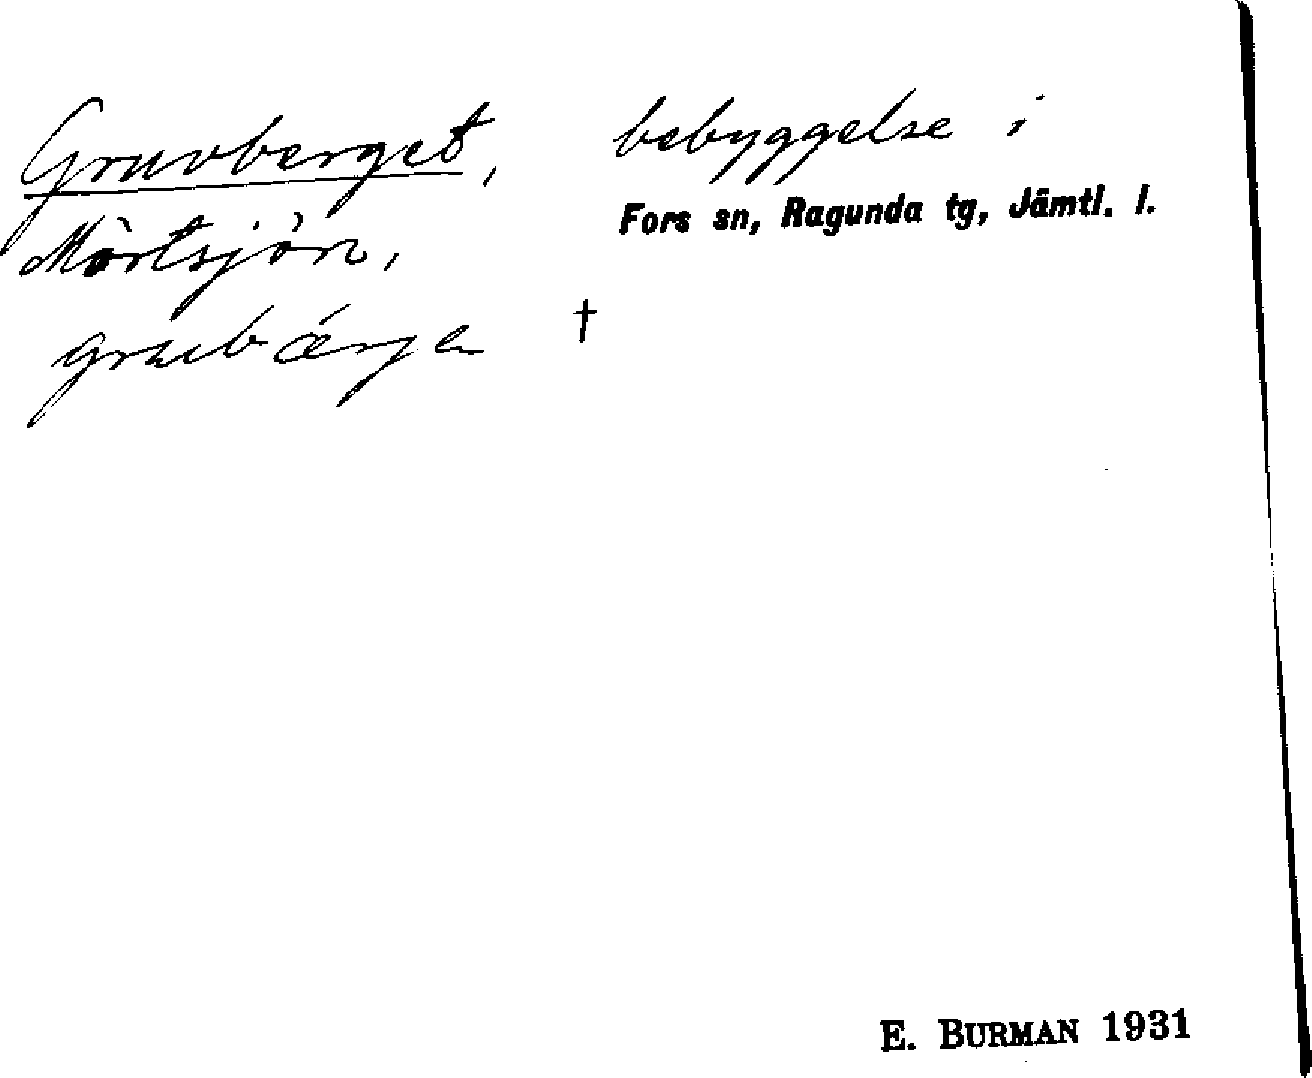 Gruvberget, bebyggelse i
Fors sn, Ragunda tg, Jämtl. l.
Mörtsjön,
†
E. BURMAN 1931